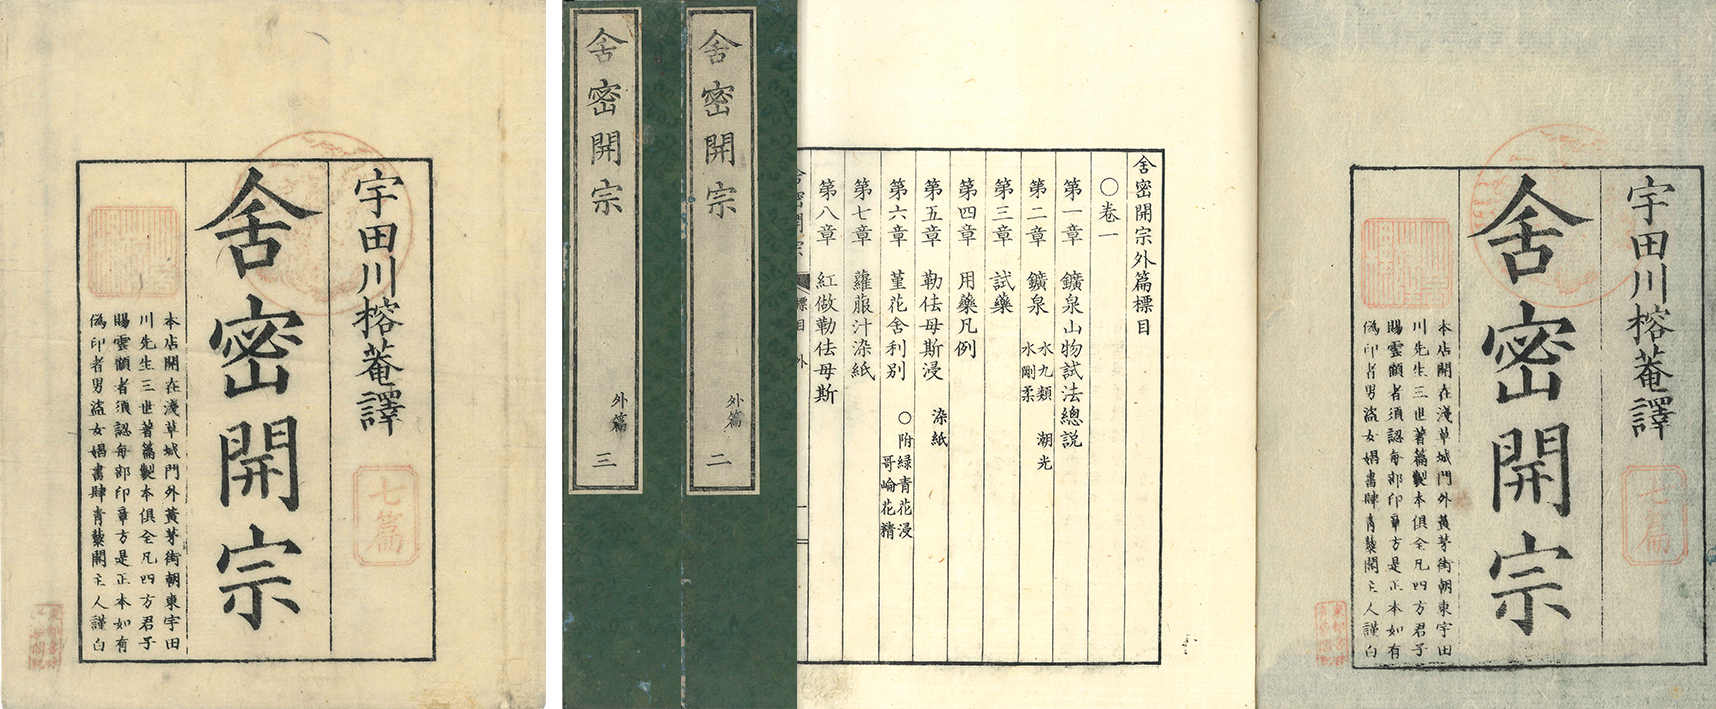 宇田川榕菴譯
七篇
舍密開宗
本店開在淺草城門外黃茅街朝東宇田
川先生三世著篇製本俱全凡四方君子
賜雲顧者須認每部印章方是正本如有
偽印者男盜女娼書肆青藜閣主人謹白
舍密開宗 外篇 三
舍密開宗 外篇 二
舍密開宗外篇標目
○卷一
第一章 鑛泉山物試法總説
第二章 鑛泉 水九類 潮光 水剛柔
第三章 試藥
第四章 用藥凡例
第五章 勒佉母斯浸 染紙
第六章 菫花舍利別 ○附緑青花浸 哥崙花精
第七章 蘿菔汁染紙
第八章 紅做勒佉母斯
舍密開宗 標目 外 一
宇田川榕菴譯
七篇
舍密開宗
本店開在淺草城門外黃茅街朝東宇田
川先生三世著篇製本俱全凡四方君子
賜雲顧者須認每部印章方是正本如有
偽印者男盜女娼書肆青藜閣主人謹白